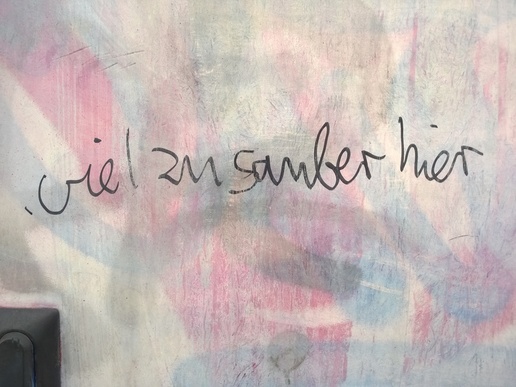 viel zu sauber hier